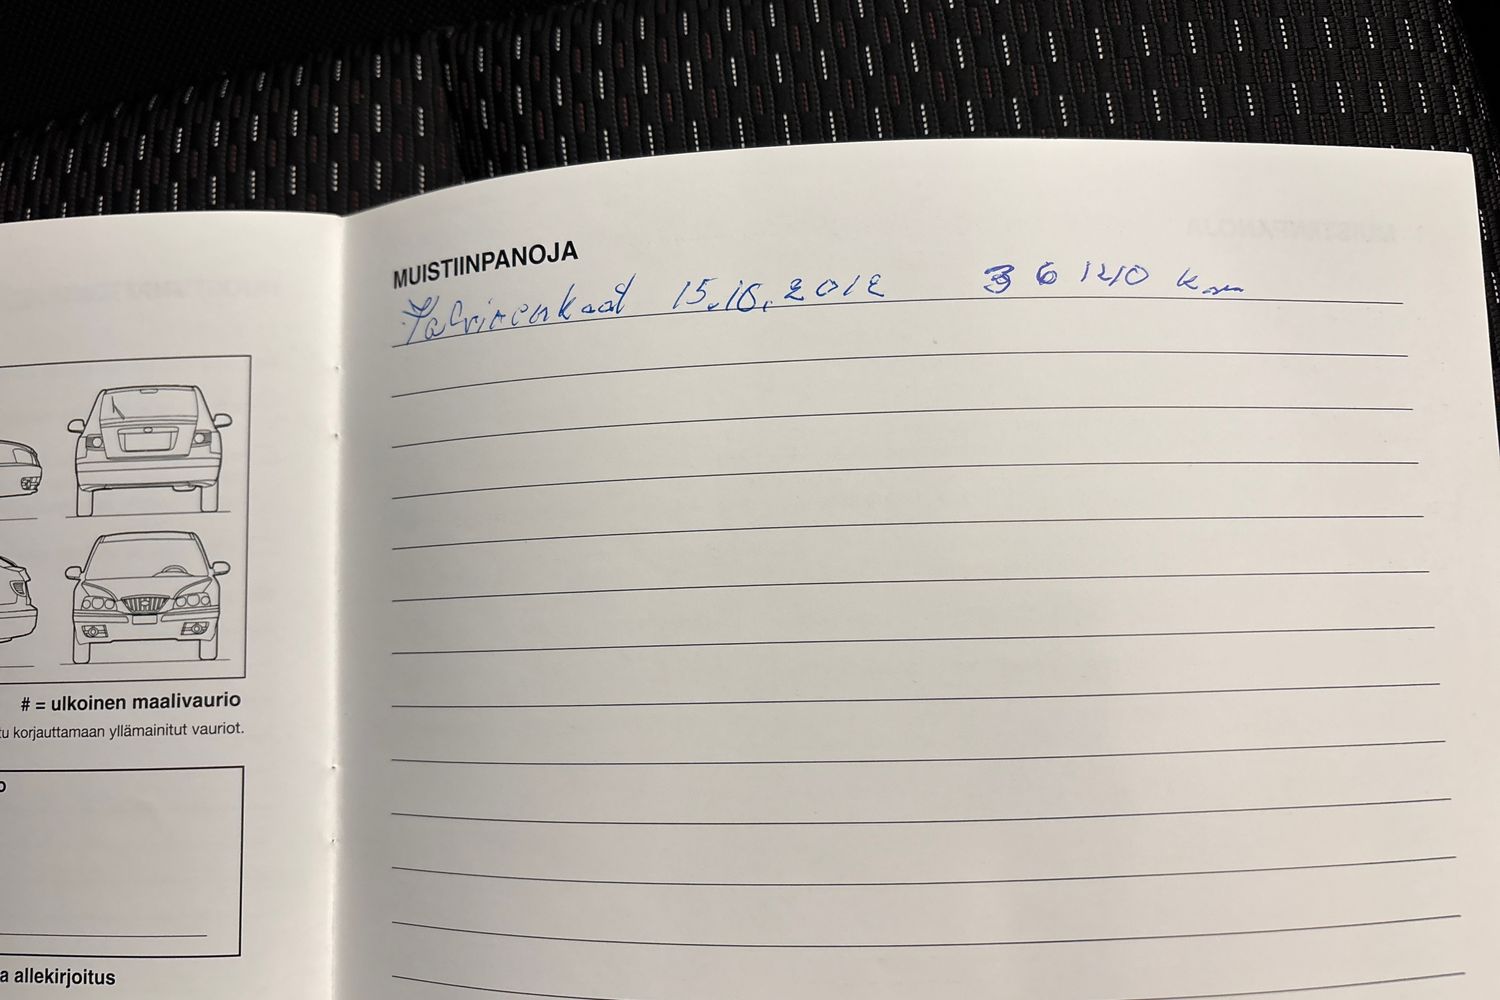 MUISTIINPANOJA
Talvirenkaat 15.10.2012 36140 km
# = ulkoinen maalivaurio
tu korjauttamaan yllämainitut vauriot.
o
a allekirjoitus